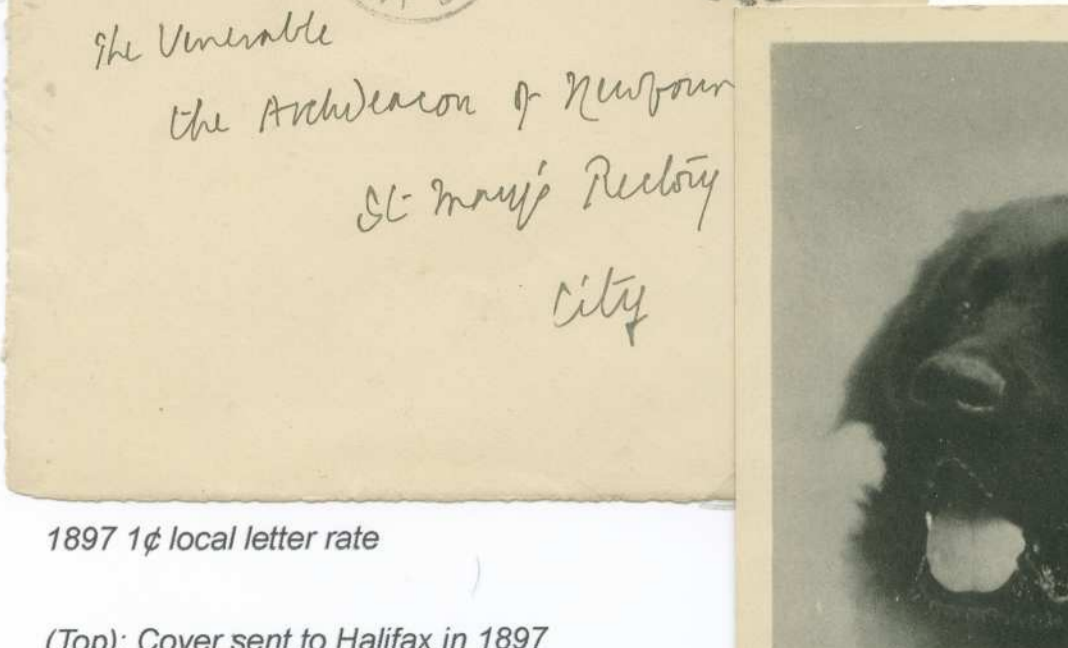 The Venerable
the Archdeacon of Newfoun
St Mary's Rectory
City
1897 1¢ local letter rate
(Top): Cover sent to Halifax in 1897